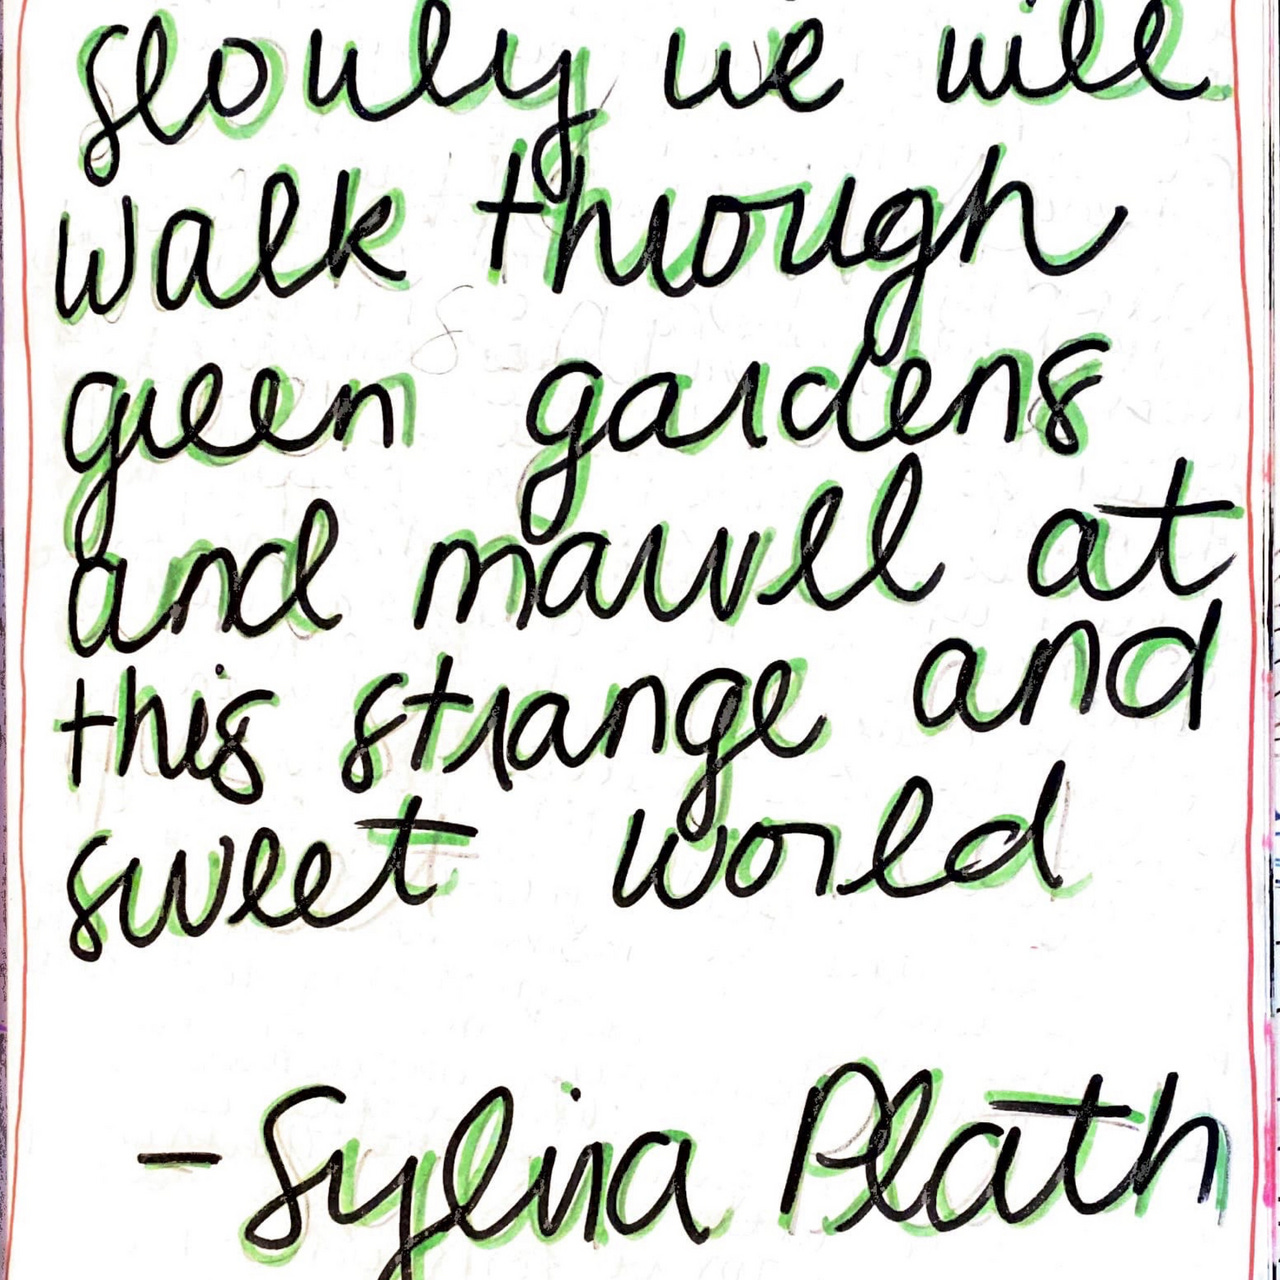 slowly we will
walk through
green gardens
and marvel at
this strange and
sweet world
- Sylvia Plath